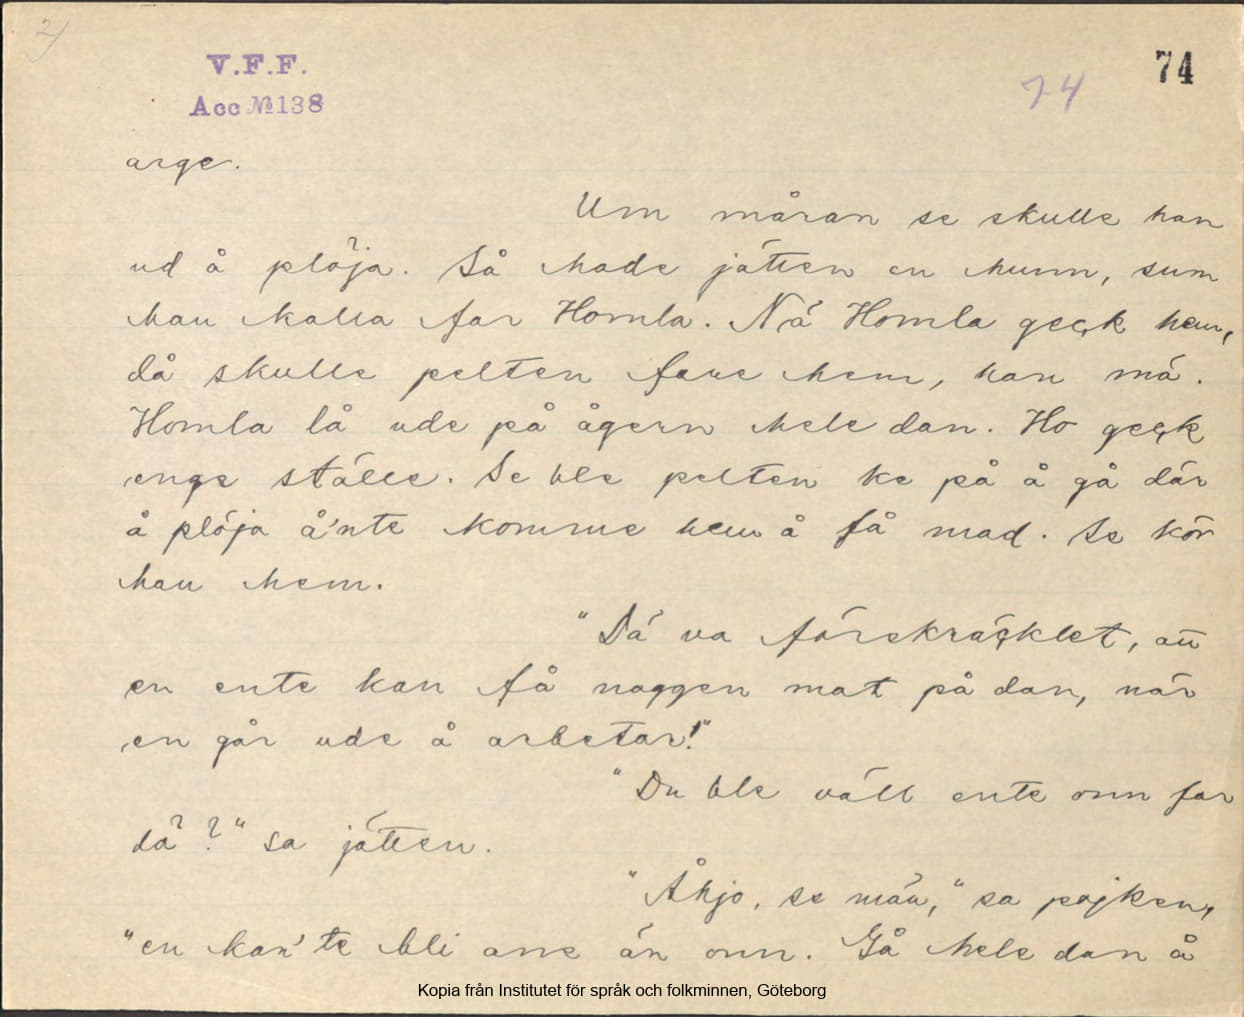 2)
V.F.F.
Acc № 138
74
74
arge.
Um måran se skulle han
ud å plöja. Så hade jätten en hunn, sum
han kalla far Homla. Nä Homla geck hem,
då skulle pelten fare hem, han mä.
Homla lå ude på ågern hele dan. Ho geck
enge ställe. Se ble pelten ke på å gå där
å plöja å'nte komme hem å få mad. Se kör
han hem.
"Dä va förskräcklet, att
en ente kan få naggen mat på dan, när
en går ude å arbetar!"
"Du ble väll ente onn far
dä?" sa jätten.
"Åhjo, se män," sa pojken,
"en kan'te bli ane än onn. Gå hele dan å
Kopia från Institutet för språk och folkminnen, Göteborg